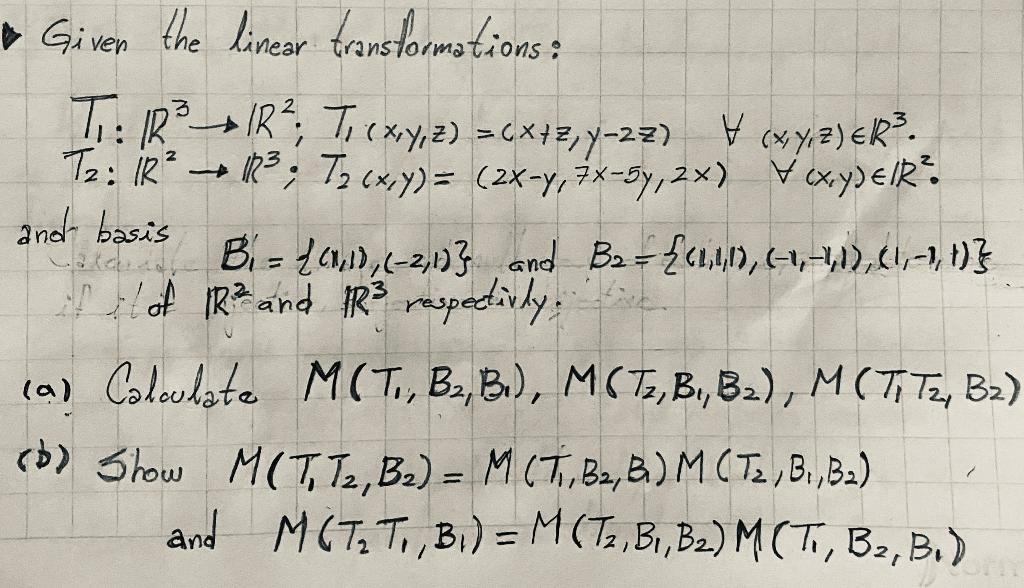 ▶ Given the linear transformations:
T₁: ℝ³ → ℝ²; T₁(x,y,z) = (x+z, y-2z) ∀ (x,y,z)∈ℝ³.
T₂: ℝ² → ℝ³; T₂(x,y) = (2x-y, 7x-5y, 2x) ∀ (x,y)∈ℝ².
and basis
B₁ = {(1,1),(-2,1)} and B₂ = {(1,1,1),(-1,-1,1),(1,-1,1)}
of ℝ² and ℝ³ respectivly.
(a) Calculate M(T₁,B₂,B₁), M(T₂,B₁,B₂), M(T₁T₂,B₂)
(b) Show M(T₁T₂,B₂) = M(T₁,B₂,B₁)M(T₂,B₁,B₂)
and M(T₂T₁,B₁) = M(T₂,B₁,B₂)M(T₁,B₂,B₁)